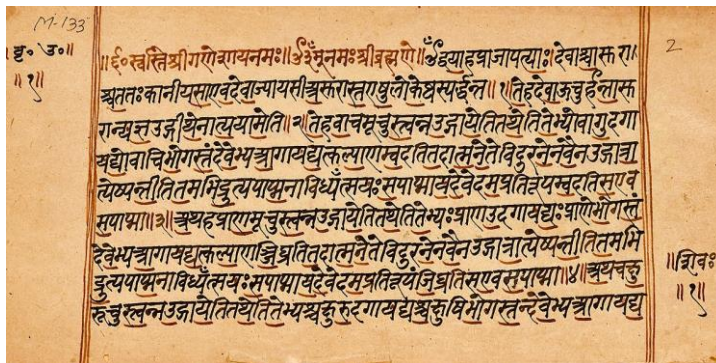 M-133
2
बृ॰ उ॰
॥१॥
॥६॰ स्वस्ति श्रीगणेशायनमः॥ॐनमःश्रीब्रह्मणे॥ॐद्वयाहप्राजापत्याःदेवाश्चासुरा
श्चततःकानीयसाएवदेवाज्यायसीअसुरास्तएषुलोकेष्वस्पर्द्धन्त॥१॥तेहदेवाऊचुर्हन्तासु
रान्यज्ञउद्गीथेनात्ययामेति॥२॥तेहवाचमूचुस्त्वन्नउद्गायेतितथेतितेभ्योवागुदगा
यद्योवाचिभोगस्तंदेवेभ्यआगायद्यत्कल्याणम्वदतितदात्मनेतेविदुरनेनवैनउद्गात्रा
त्येष्यन्तीतितमभिद्रुत्यपाप्मनाविध्यँत्सयःसपाप्मायदेवेदमप्रतिरूपम्वदतिसएव
सपाप्मा॥३॥अथहप्राणमूचुस्त्वन्नउद्गायेतितथेतितेभ्यःप्राणउदगायद्यःप्राणेभोगस्तं
देवेभ्यआगायद्यत्कल्याणञ्जिघ्रतितदात्मनेतेविदुरनेनवैनउद्गात्रात्येष्यन्तीतितमभि
द्रुत्यपाप्मनाविध्यँत्सयःसपाप्मायदेवेदमप्रतिरूपंजिघ्रतिसएवसपाप्मा॥४॥अथचक्षु
रूचुस्त्वन्नउद्गायेतितथेतितेभ्यश्चक्षुरुदगायद्यश्चक्षुषिभोगस्तन्देवेभ्यआगायद्य
॥शिवः
॥१॥